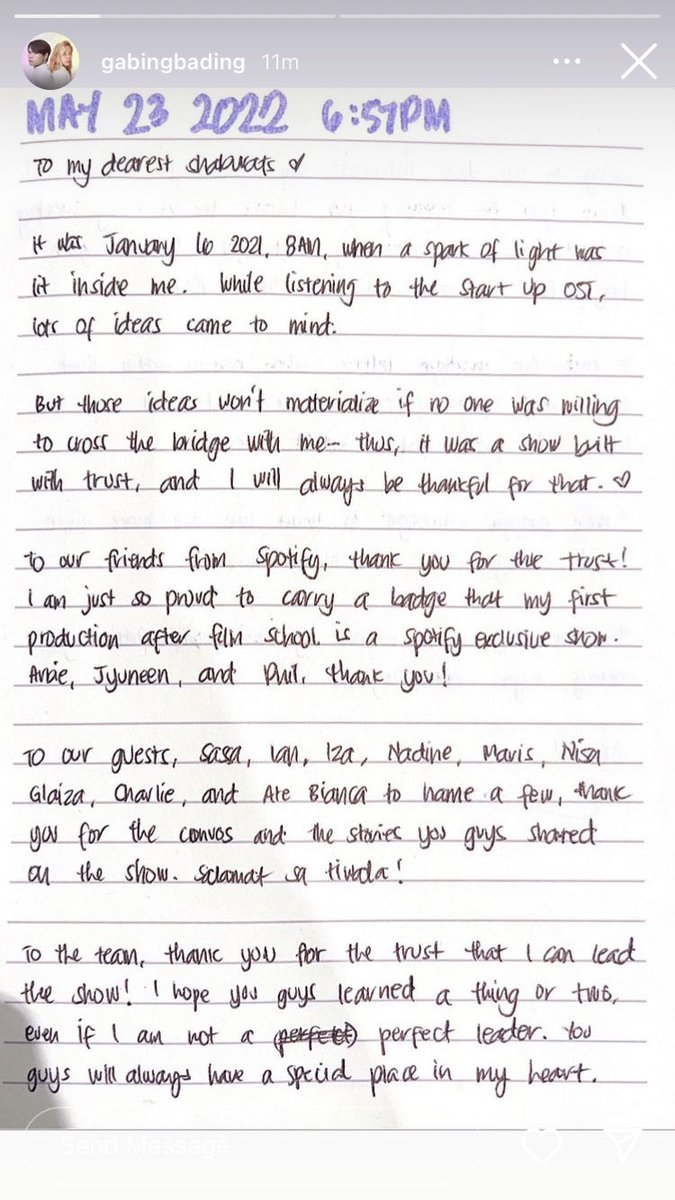 gabingbading 11m
MAY 23 2022 6:57PM
To my dearest shabarats ♡
it was January 16 2021, 8AM, when a spark of light was
lit inside me. While listening to the Start Up OST,
lots of ideas came to mind.
But those ideas won't materialize if no one was willing
to cross the bridge with me- thus, it was a show built
with trust, and I will always be thankful for that. ♡
To our friends from Spotify, thank you for the trust!
I am just so proud to carry a badge that my first
production after film school is a spotify exclusive show.
Arbie, Jyuneen, and Phil, thank you!
To our guests, Sasa, Ian, Iza, Nadine, Mavis, Nisa
Glaiza, Charlie, and Ate Bianca to name a few, thank
you for the convos and the stories you guys shared
on the show. Salamat sa tiwala!
To the team, thank you for the trust that I can lead
the show! I hope you guys learned a thing or two,
even if I am not a perfect leader. You
guys will always have a special place in my heart.
Send Message